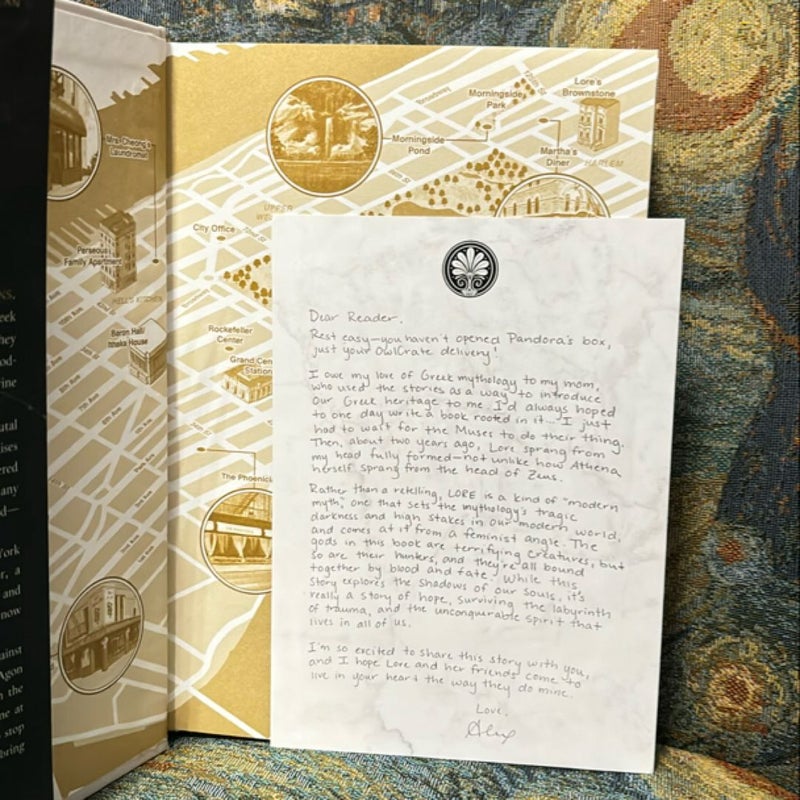 AN
NS,
eek
hey
od-
rine
utal
ises
ered
any
d—
York
r, a
and
now
ainst
Agon
n the
ne at
stop
bring
Mrs. Cheong's
Laundromat
Perseous
Family Apartment
HELL'S KITCHEN
Baron Hall/
Ithaka House
Broadway
125th St
Morningside
Park
Lore's
Brownstone
Morningside
Pond
Martha's
Diner
HARLEM
96th St
UPPER
City Office
72nd St
Rockefeller
Center
Grand Cen
Station
34th St
The Phoenicia
Dear Reader,
Rest easy—you haven't opened Pandora's box,
just your OwlCrate delivery!
I owe my love of Greek mythology to my mom,
who used the stories as a way to introduce
our Greek heritage to me. I'd always hoped
to one day write a book rooted in it... I just
had to wait for the Muses to do their thing.
Then, about two years ago, Lore sprang from
my head fully formed—not unlike how Athena
herself sprang from the head of Zeus.
Rather than a retelling, LORE is a kind of "modern
myth," one that sets the mythology's tragic
darkness and high stakes in our modern world,
and comes at it from a feminist angle. The
gods in this book are terrifying creatures, but
so are their hunters, and they're all bound
together by blood and fate. While this
story explores the shadows of our souls, it's
really a story of hope, surviving the labyrinth
of trauma, and the unconquerable spirit that
lives in all of us.
I'm so excited to share this story with you,
and I hope Lore and her friends come to
live in your heart the way they do mine.
Love,
Alex